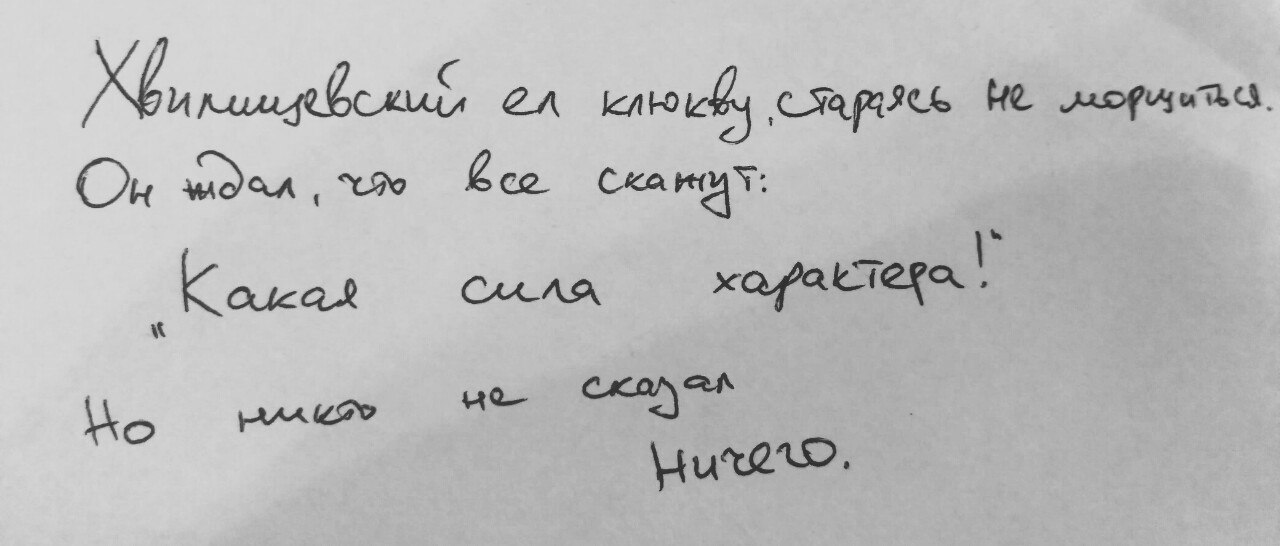 Хвилищевский ел клюкву, стараясь не морщиться.
Он ждал, что все скажут:
„Какая сила характера!“
Но никто не сказал
ничего.